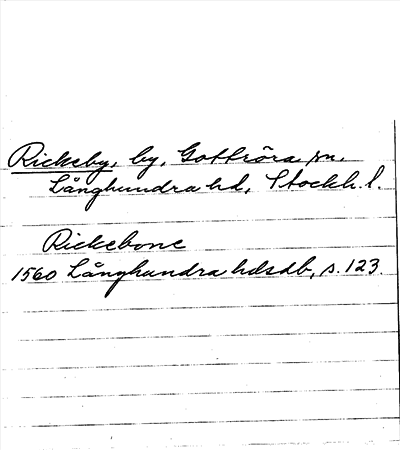 Rickeby, by, Gottröra sn.
Långhundra hd, Stockh. l.
Rickebone
1560 Långhundra hdsdb, s. 123.